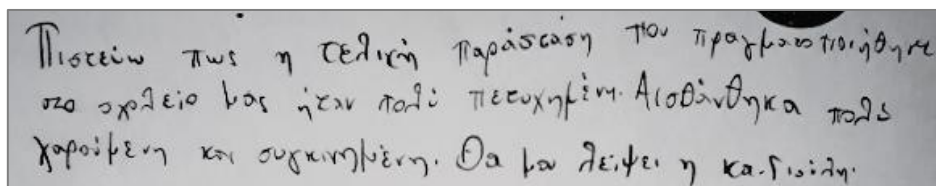 Πιστεύω πως η τελική παράσταση που πραγματοποιήθηκε
στο σχολείο μας ήταν πολύ πετυχημένη. Αισθάνθηκα πολύ
χαρούμενη και συγκινημένη. Θα μου λείψει η κα. Γιούλη.